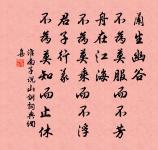 蘭生幽谷
不為莫服而不芳
舟在江海
不為莫乘而不浮
君子行義
不為莫知而止休
淮南子說山訓詞典網
集